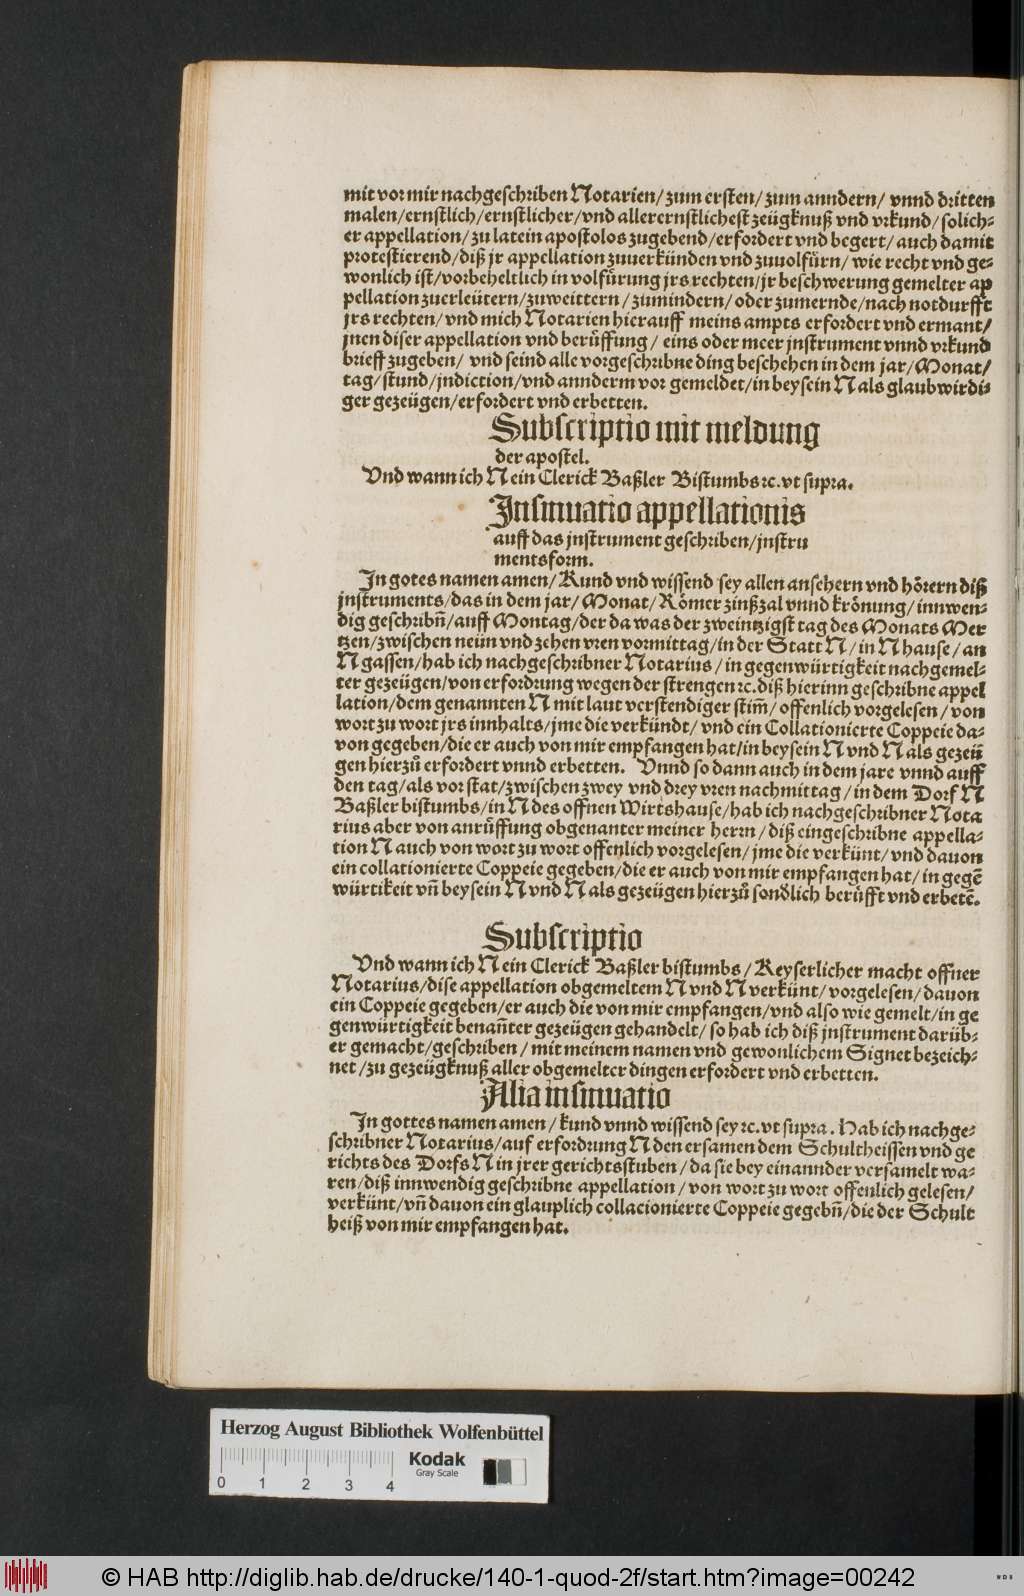 mit vor mir nachgeschriben Notarien/ zum ersten/ zum anndern/ vnnd dritten
malen/ernstlich/ernstlicher/vnd allerernstlichest zeügknuß vnd vrkund/ solich⸗
er appellation/ zu latein apostolos zugebend/erfordert vnd begert/ auch damit
protestierend/diß jr appellation zuuerkünden vnd zuuolfürn/ wie recht vnd ge⸗
wonlich ist/vorbeheltlich in volfürung jrs rechten/jr beschwerung gemelter ap
pellation zuerleütern/zuweittern/ zumindern/ oder zumernde/nach notdurfft
jrs rechten/ vnd mich Notarien hierauff meins ampts erfordert vnd ermant/
jnen diser appellation vnd berüffung/ eins oder meer jnstrument vnnd vrkund
brieff zugeben/ vnd seind alle vorgeschribne ding beschehen in dem jar/Monat/
tag/stund/jndiction/vnd annderm vor gemeldet/in beysein N als glaubwirdi⸗
ger gezeügen/erfordert vnd erbetten.
Subscriptio mit meldung
der apostel.
Vnd wann ich N ein Clerick Baßler Bistumbs ꝛc. vt supra.
Insinuatio appellationis
auff das jnstrument geschriben/jnstru
mentsform.
In gotes namen amen/ Kund vnd wissend sey allen ansehern vnd hörern diß
jnstruments/das in dem jar/ Monat/ Römer zinßzal vnnd krönung/ innwen⸗
dig geschribn̄/auff Montag/der da was der zweintzigst tag des Monats Mer
tzen/zwischen neün vnd zehen vren vormittag/in der Statt N/ in N hause/ an
N gassen/hab ich nachgeschribner Notarius/ in gegenwürtigkeit nachgemel⸗
ter gezeügen/von erfordrung wegen der strengen ꝛc. diß hierinn geschribne appel
lation/dem genannten N mit laut verstendiger stim̄/ offenlich vorgelesen/ von
wort zu wort jrs innhalts/jme die verkündt/ vnd ein Collationierte Coppeie da⸗
von gegeben/die er auch von mir empfangen hat/in beysein N vnd N als gezeü
gen hierzů erfordert vnnd erbetten. Vnnd so dann auch in dem jare vnnd auff
den tag/als vor stat/zwischen zwey vnd drey vren nachmittag/ in dem Dorf N
Baßler bistumbs/in N des offnen Wirtshause/hab ich nachgeschribner Nota
rius aber von anrüffung obgenanter meiner herrn/ diß eingeschribne appella⸗
tion N auch von wort zu wort offenlich vorgelesen/ jme die verkünt/ vnd dauon
ein collationierte Coppeie gegeben/die er auch von mir empfangen hat/ in gegē
würtikeit vn̄ beysein N vnd N als gezeügen hierzů sondlich berüfft vnd erbetē.
Subscriptio
Vnd wann ich N ein Clerick Baßler bistumbs/ Keyserlicher macht offner
Notarius/dise appellation obgemeltem N vnd N verkünt/ vorgelesen/ dauon
ein Coppeie gegeben/er auch die von mir empfangen/vnd also wie gemelt/in ge
genwürtigkeit benan̄ter gezeügen gehandelt/ so hab ich diß jnstrument darüb⸗
er gemacht/geschriben/ mit meinem namen vnd gewonlichem Signet bezeich⸗
net/zu gezeügknuß aller obgemelter dingen erfordert vnd erbetten.
Alia insinuatio
In gottes namen amen/ kund vnnd wissend sey ꝛc. vt supra. Hab ich nachge⸗
schribner Notarius/auf erfordrung N den ersamen dem Schultheissen vnd ge
richts des Dorfs N in jrer gerichtsstuben/ da sie bey einannder versamelt wa⸗
ren/diß innwendig geschribne appellation/ von wort zu wort offenlich gelesen/
verkünt/vn̄ dauon ein glauplich collacionierte Coppeie gegebn̄/die der Schult
heiß von mir empfangen hat.
Herzog August Bibliothek Wolfenbüttel
Kodak
Gray Scale
0 1 2 3 4
© HAB http://diglib.hab.de/drucke/140-1-quod-2f/start.htm?image=00242